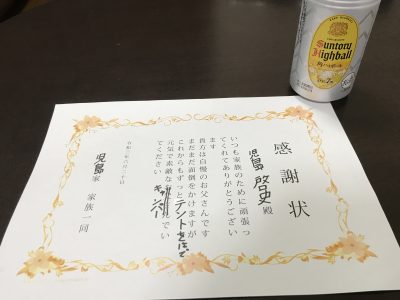 感謝状
児島 啓史 殿
いつも家族のために頑張っ
てくれてありがとうござい
ます
貴方は自慢のお父さんです
まだまだ面倒をかけますが
これからもずっとテントをはって
元気で素敵な
キャンパー
でい
てください
児島家 家族一同
THE 角
Suntory
Highball
角ハイボール